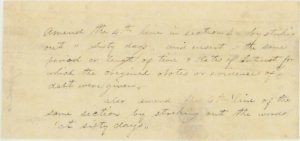 Amend the 4th line in section 4 by strikeing
out "sixty days" and insert "the same
period or length of time & rates of interest for
which the original notes or evidence of
debt were given.
also amend the 5th line of the
same section by stacking out the words
"at sixty days."